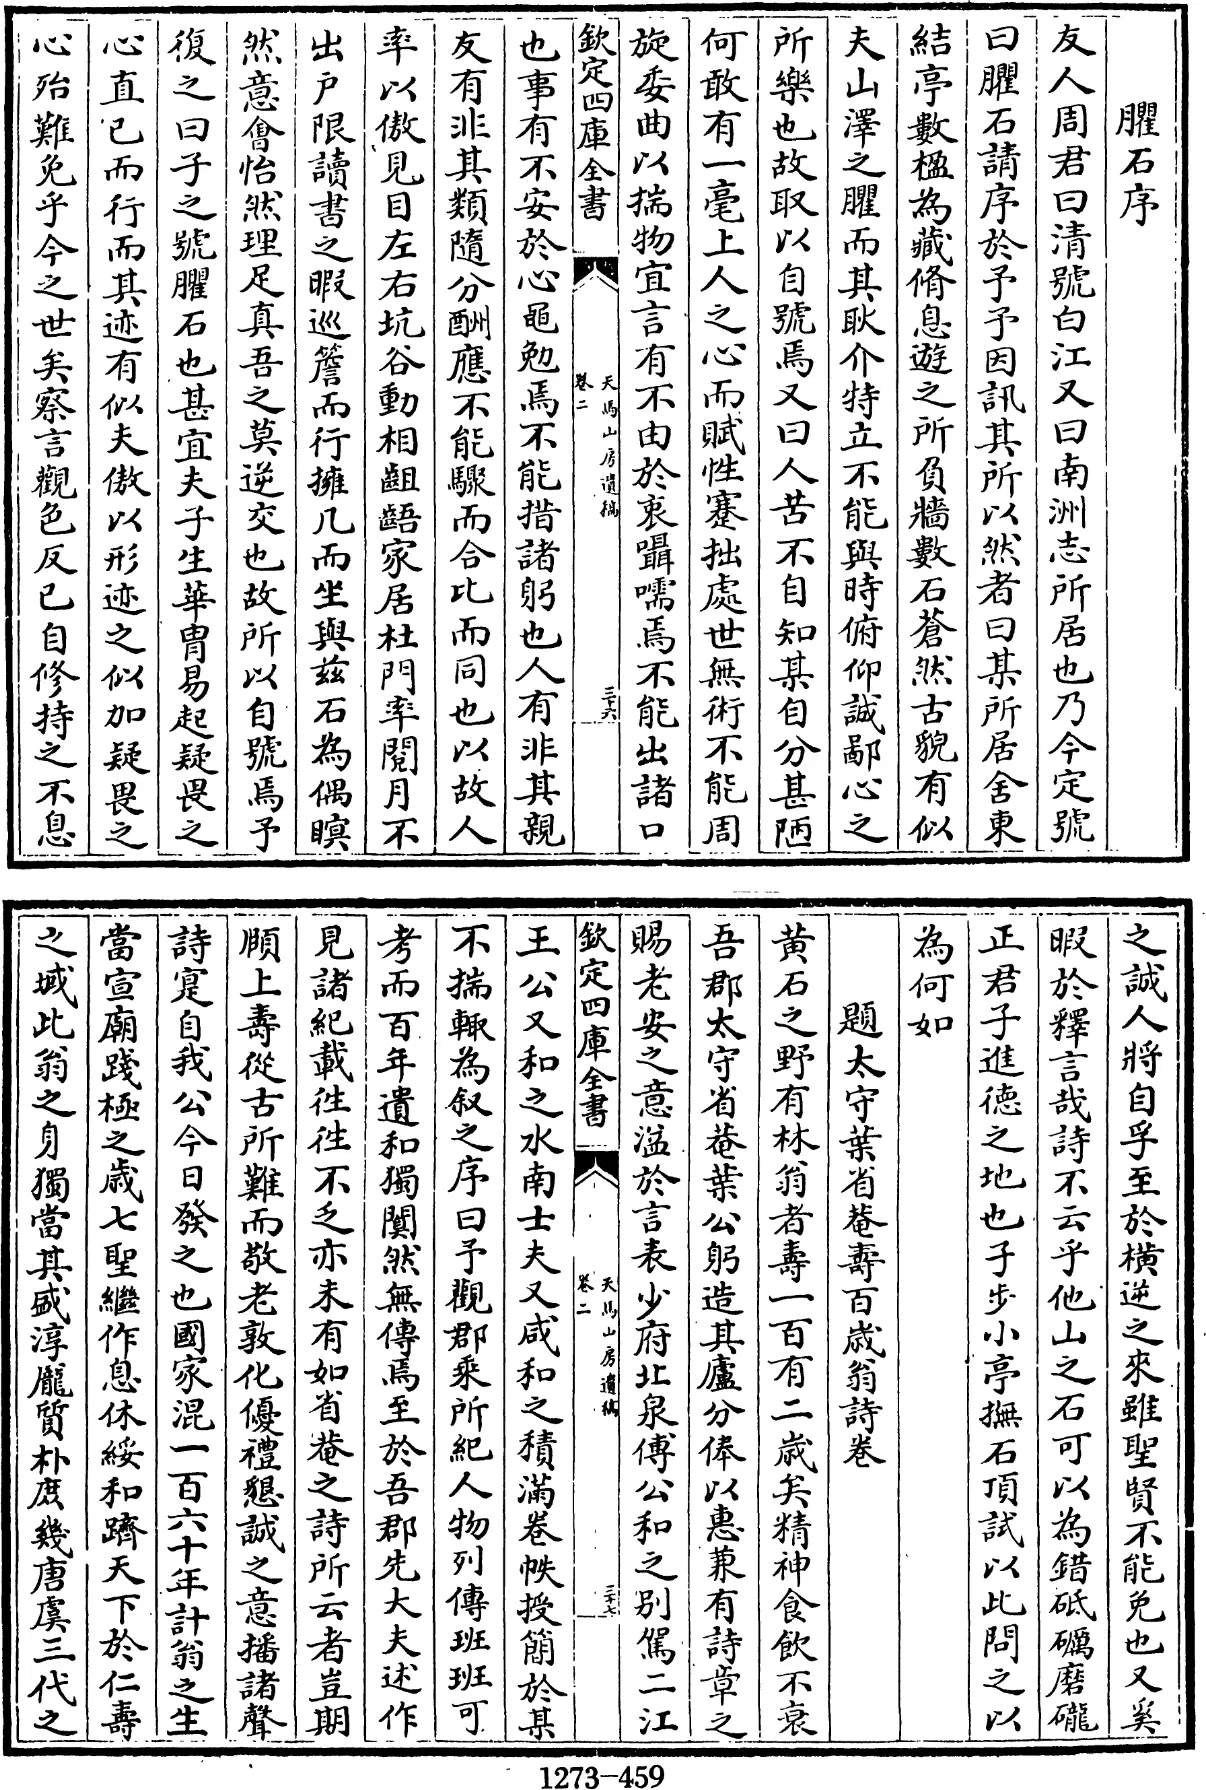 臞石序
友人周君曰清號白江又曰南洲志所居也乃今定號
曰臞石請序於予予因訊其所以然者曰某所居舍東
結亭數楹為藏脩息遊之所負牆數石蒼然古貌有似
夫山澤之臞而其耿介特立不能與時俯仰誠鄙心之
所樂也故取以自號焉又曰人苦不自知某自分甚陋
何敢有一毫上人之心而賦性蹇拙處世無術不能周
旋委曲以揣物宜言有不由於衷囁嚅焉不能出諸口
欽定四庫全書
天馬山房遺稿
卷二
三十六
也事有不安於心黽勉焉不能措諸躬也人有非其親
友有非其類隨分酬應不能驟而合比而同也以故人
率以傲見目左右坑谷動相齟齬家居杜門率閱月不
出戶限讀書之暇巡簷而行擁几而坐與茲石為偶瞑
然意會怡然理足真吾之莫逆交也故所以自號焉予
復之曰子之號臞石也甚宜夫子生華胄易起疑畏之
心直已而行而其迹有似夫傲以形迹之似加疑畏之
心殆難免乎今之世矣察言觀色反已自修持之不息
之誠人將自孚至於橫逆之來雖聖賢不能免也又奚
暇於釋言哉詩不云乎他山之石可以為錯砥礪磨礲
正君子進德之地也子步小亭撫石頂試以此問之以
為何如
題太守葉省菴壽百歲翁詩卷
黃石之野有林翁者壽一百有二歲矣精神食飲不衰
吾郡太守省菴葉公躬造其廬分俸以惠兼有詩章之
賜老安之意溢於言表少府北泉傅公和之別駕二江
欽定四庫全書
天馬山房遺稿
卷二
三十七
王公又和之水南士夫又咸和之積滿卷帙授簡於某
不揣輙為叙之序曰予觀郡乘所紀人物列傳班班可
考而百年遺和獨闃然無傳焉至於吾郡先大夫述作
見諸紀載徃徃不乏亦未有如省菴之詩所云者豈期
頤上壽從古所難而敬老敦化優禮懇誠之意播諸聲
詩寔自我公今日發之也國家混一百六十年計翁之生
當宣廟踐極之歲七聖繼作息休綏和躋天下於仁壽
之域此翁之身獨當其盛淳龐質朴庶幾唐虞三代之
1273-459